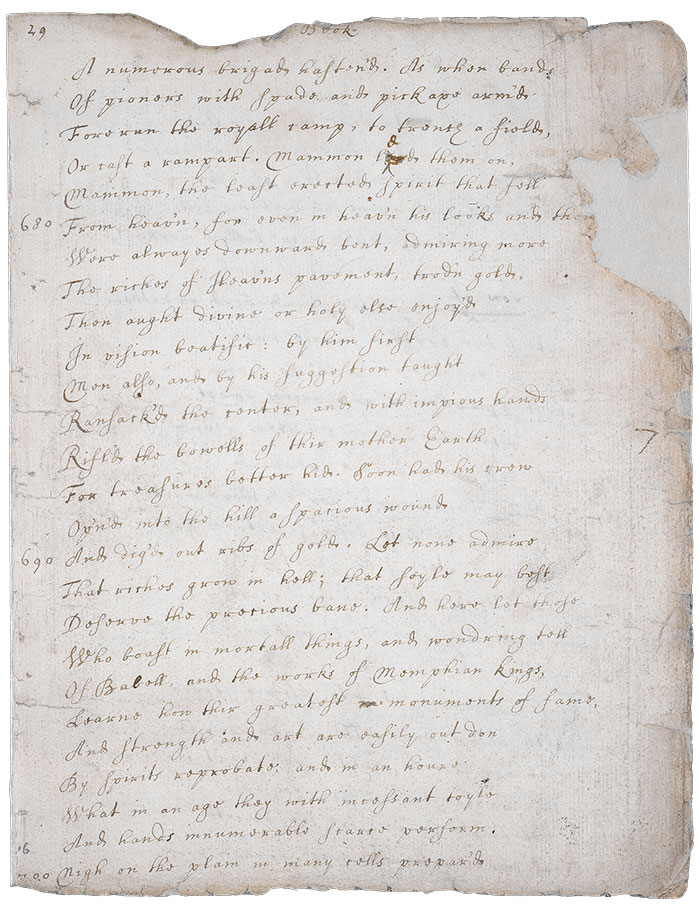 29 Book
A numerous brigad hasten'd. As when bands
Of pioners with spade and pickaxe arm'd
Forerun the royall camp, to trench a field,
Or cast a rampart. Mammon led them on,
Mammon, the least erected spirit that fell
680 From heav'n, for even in heav'n his looks and
Were alwayes downward bent, admiring more
The riches of Heav'ns pavement, trod'n gold,
Then aught divine or holy else enjoy'd
In vision beatific: by him first
Men also, and by his suggestion taught
Ransack'd the center, and with impious hands
Rifl'd the bowells of thir mother Earth
7
For treasures better hid. Soon had his crew
Op'n'd into the hill a spacious wound
690 And dig'd out ribs of gold. Let none admire
That riches grow in hell; that soyle may best
Deserve the precious bane. And here let those
Who boast in mortall things, and wondring tell
Of Babell, and the works of Memphian kings,
Learne how thir greatest monuments of fame,
And strength and art are easily out don
By spirits reprobate; and in an houre
What in an age they with incessant toyle
And hands innumerable scarce perform.
700 Nigh on the plain in many cells prepar'd